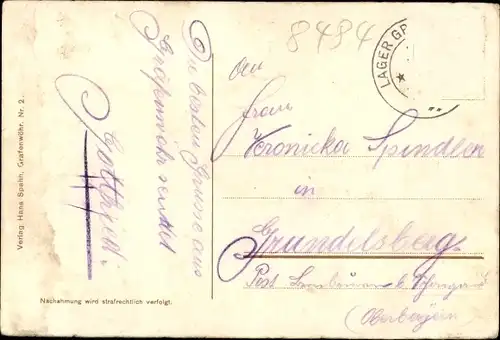 Verlag Hans Spahn, Grafenwöhr. Nr. 2.
Die besten Grüsse aus
Grafenwöhr sendet
Nachahmung wird strafrechtlich verfolgt.
8484
LAGER GR
An
Frau
Veronicka Spindler
in
Grundelsberg
Post
(Oberbayern)